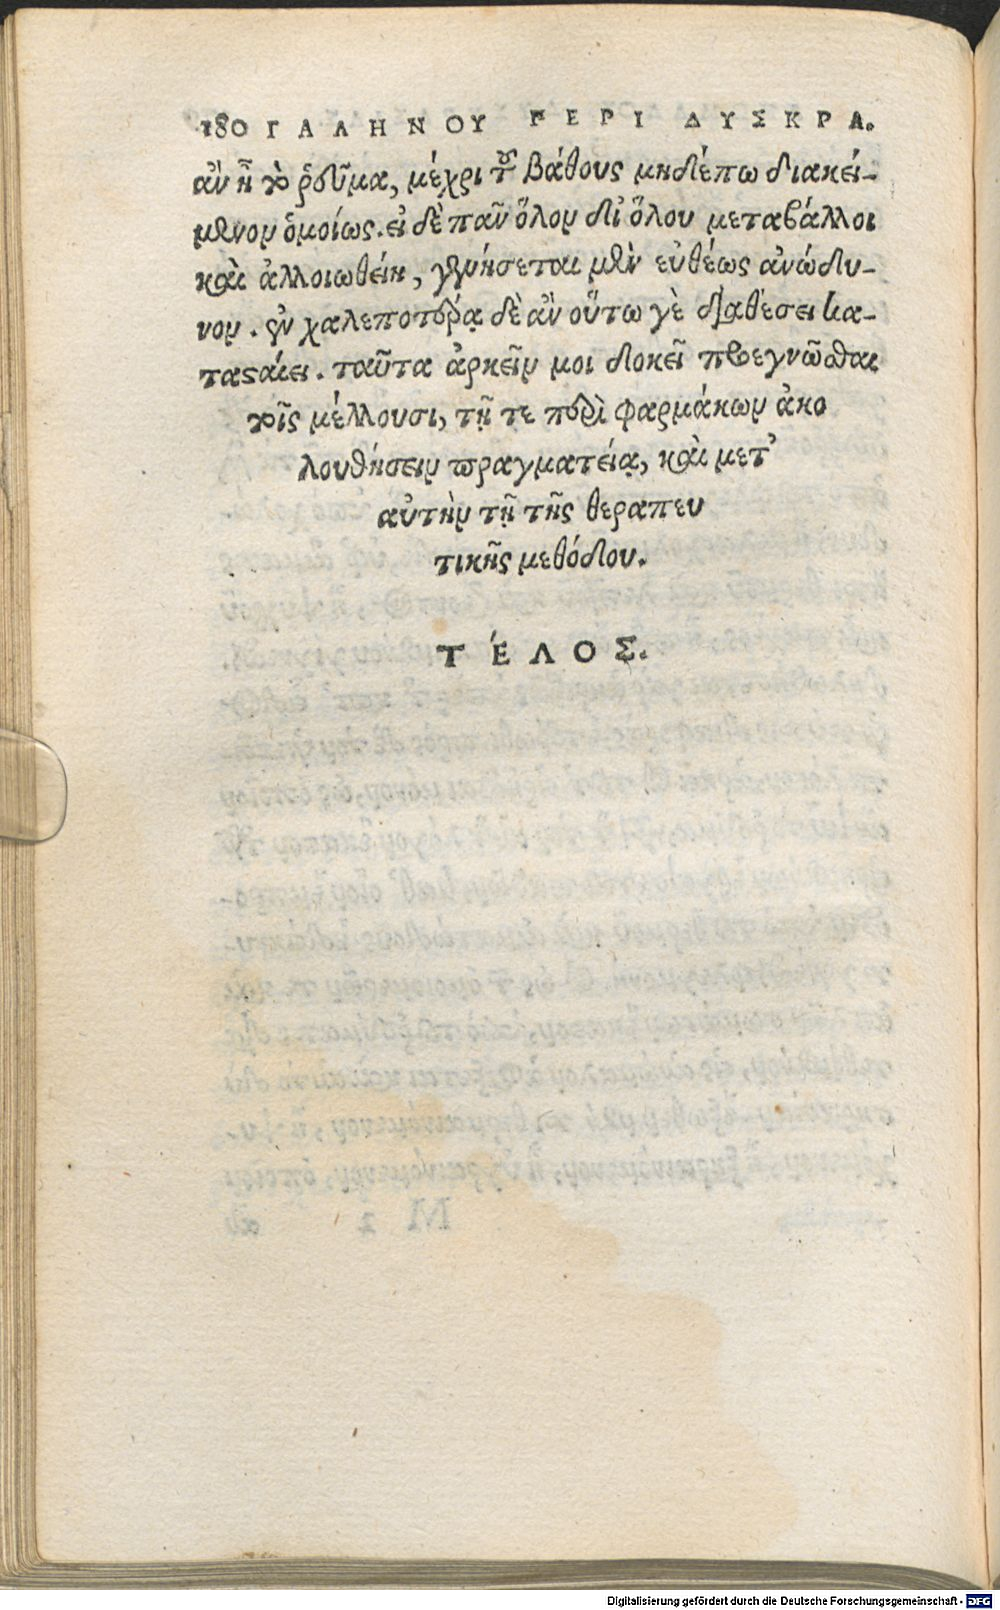 180 ΓΑΛΗΝΟΥ ΠΕΡΙ ΔΥΣΚΡΑ.
ἂν ᾖ τὸ ῥεῦμα, μέχρι τοῦ βάθους μηδέπω διακεί-
μενον ὁμοίως. εἰ δὲ πᾶν ὅλον δι’ ὅλου μεταβάλλοι
καὶ ἀλλοιωθείη, γενήσεται μὲν εὐθέως ἀνώδυ-
νον. ἐν χαλεποτέρᾳ δὲ ἂν οὕτω γε διαθέσει κα-
ταςαίει. ταῦτα ἀρκεῖν μοι δοκεῖ προεγνῶσθαι
τοῖς μέλλουσι, τῇ τε περὶ φαρμάκων ἀκο
λουθήσειν πραγματείᾳ, καὶ μετ’
αὐτὴν τῇ τῆς θεραπευ
τικῆς μεθόδου.
ΤΈΛΟΣ.
Digitalisierung gefördert durch die Deutsche Forschungsgemeinschaft - DFG